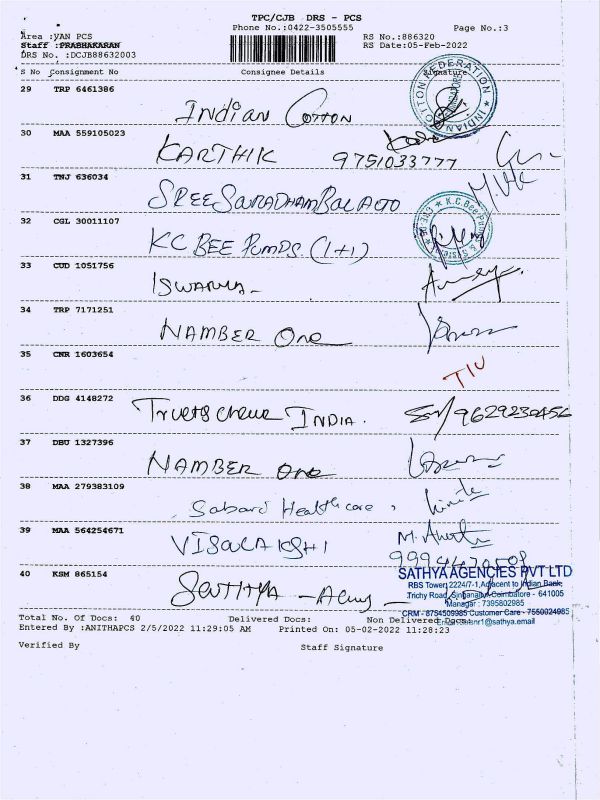 TPC/CJB DRS - PCS
Phone No.:0422-3505555
Page No.:3
Area :VAN PCS
RS No.:886320
Staff :PRABHAKARAN
RS Date:05-Feb-2022
DRS No. :DCJB88632003
S No Consignment No Consignee Details Signature
29 TRP 6461386
Indian Cotton
COTTON FEDERATION * INDIAN
30 MAA 559105023
KARTHIK 9751033777
31 TNJ 636034
32 CGL 30011107
KC BEE PUMPS (1+1)
K.C.Bee Pumps
33 CUD 1051756
ISWARYA
34 TRP 7171251
NAMBER One
35 CNR 1603654
TIU
36 DDG 4148272
INDIA. 9629230456
37 DBU 1327396
NAMBER One
38 MAA 279383109
Sabari Healthcare,
39 MAA 564254671
VISALAKSHI
40 KSM 865154
SATHYA AGENCIES PVT LTD
RBS Tower, 2224/7-1,Adjacent to Indian Bank
Trichy Road, Singanallur Coimbatore - 641005
Manager : 7395802985
CRM - 8754509985 Customer Care - 7550024985
Total No. Of Docs: 40 Delivered Docs: Non Delivered Docs:
Entered By :ANITHAPCS 2/5/2022 11:29:05 AM Printed On: 05-02-2022 11:28:23
Verified By Staff Signature